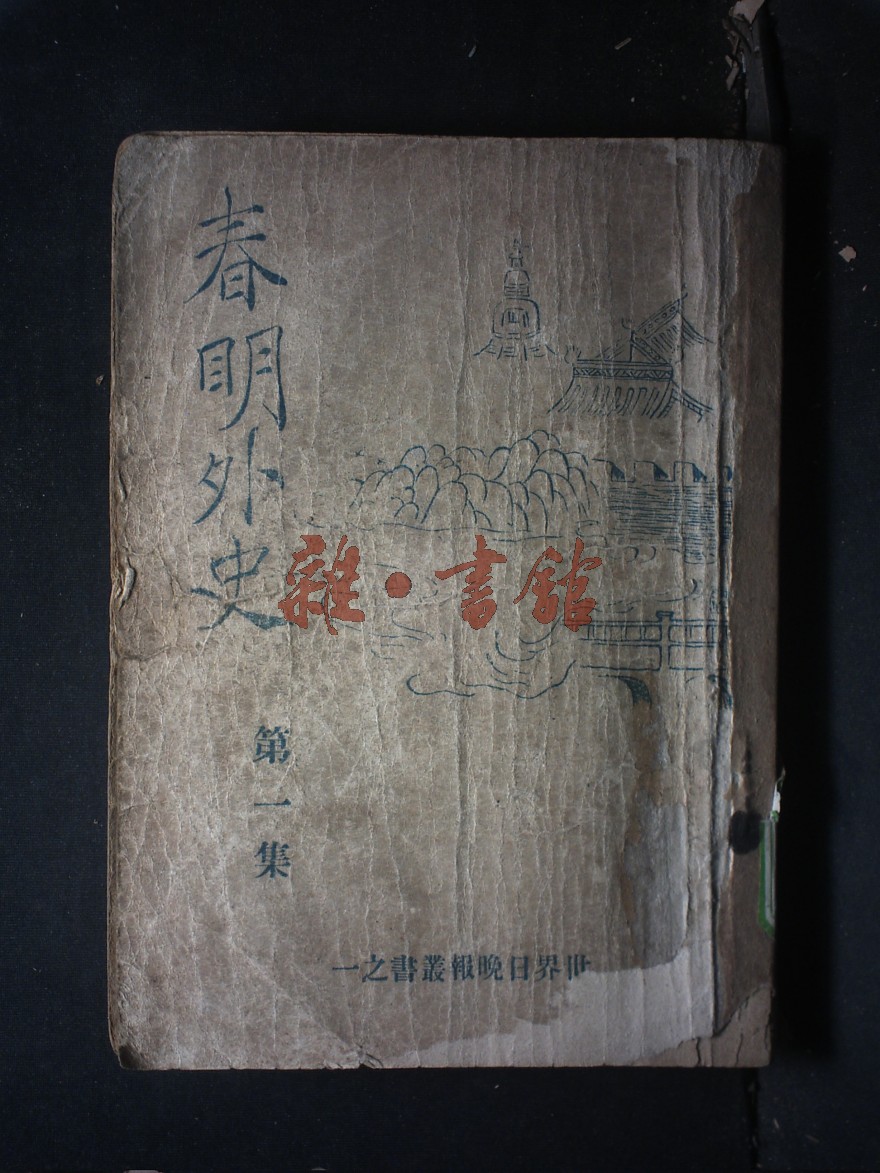 春明外史
第一集
世界日晚報叢書之一
雜·書舘